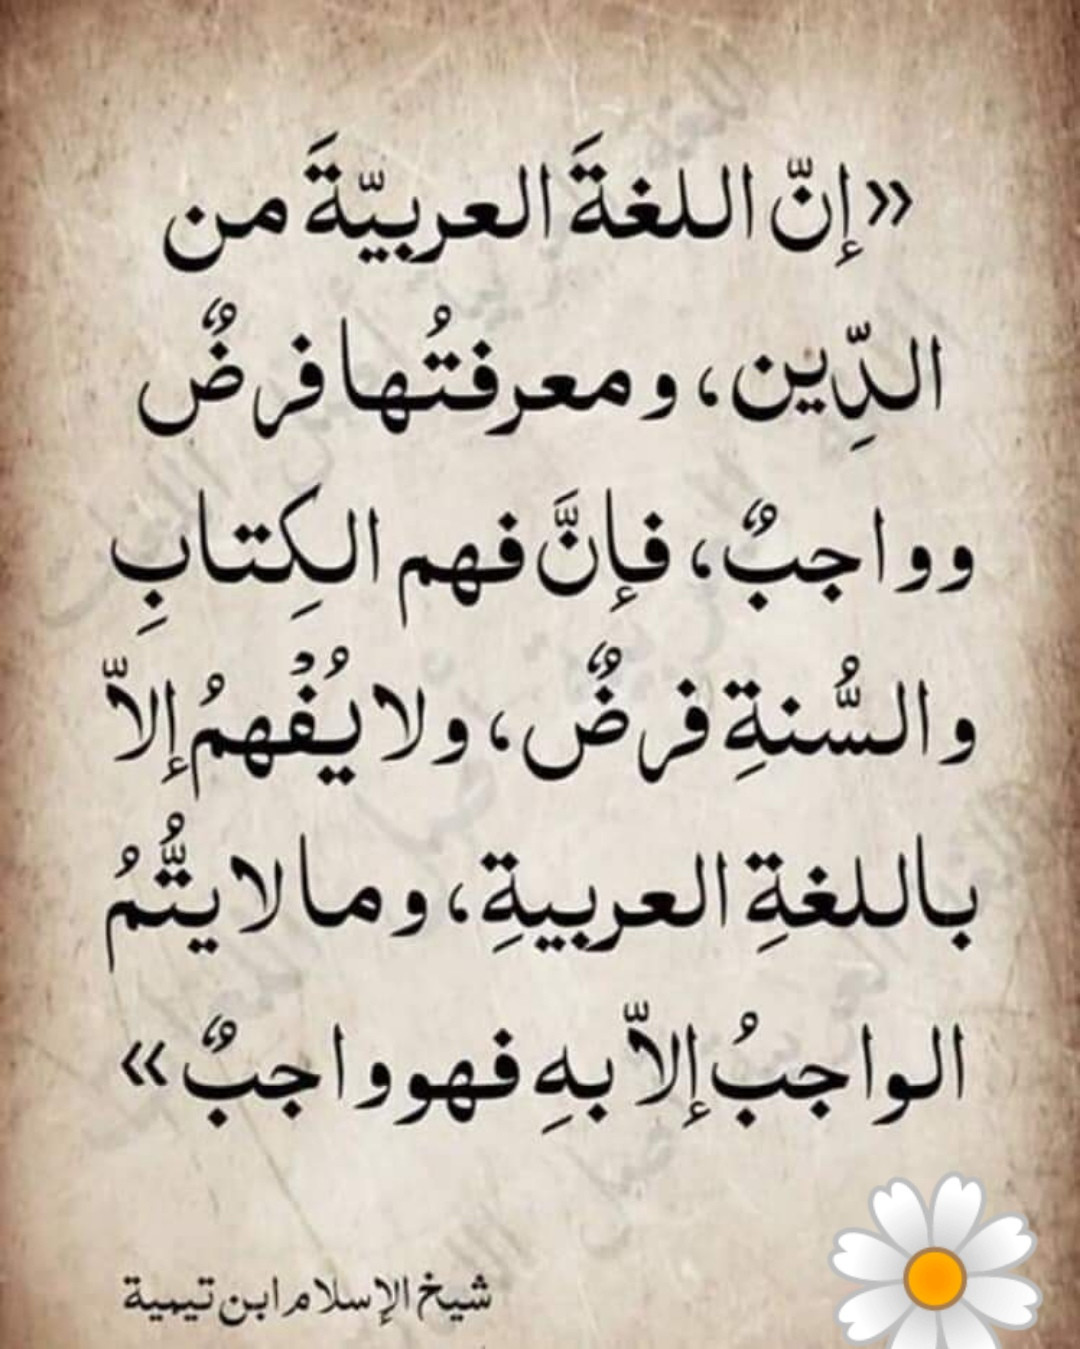 «إنّ اللغةَ العربيّةَ من
الدِّين، ومعرفتُها فرضٌ
وواجبٌ، فإنَّ فهم الكِتابِ
والسُّنةِ فرضٌ، ولا يُفْهمُ إلاّ
باللغةِ العربيةِ، وما لا يتُّمُ
الواجبُ إلاّ بهِ فهو واجبٌ»
شيخ الإسلام ابن تيمية